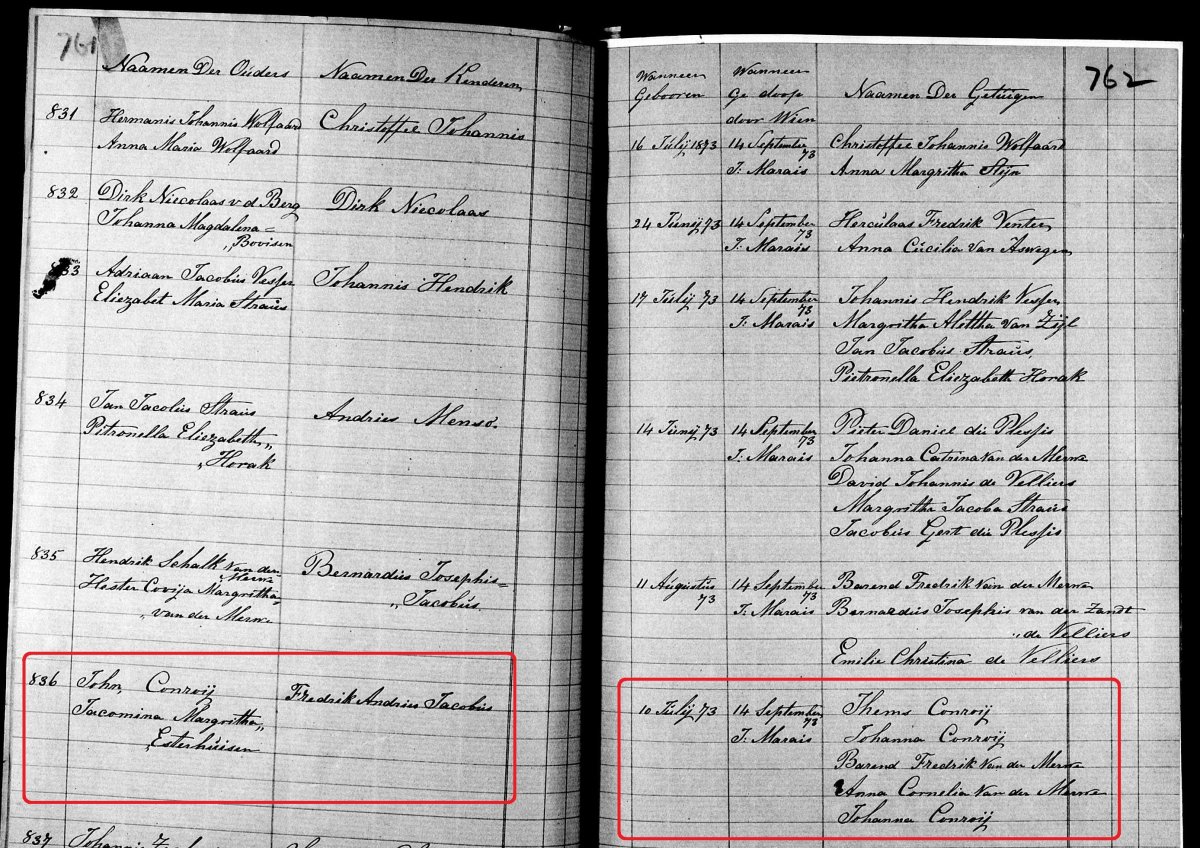 761
Naamen Der Ouders Naamen Der Kinderen
831 Hermanis Johannis Wolfaard Christoffee Johannis
Anna Maria Wolfaard
832 Dirk Niecolaas v d Berg Dirk Niecolaas
Johanna Magdalena =
„ Bovisen
833 Adriaan Jacobüs Vesser Johannis Hendrik
Eliezabet Maria Straüs
834 Jan Jacobüs Straüs Andries Menso.
Pitronella Eliezabeth „
„ Horak
835 Hendrik Schalk van der Bernardüs Josephis =
Merwe „ Jacobüs
Hester Covija Margritha „
„ van der Merwe
836 John Conroij Fredrik Andries Jacobüs
Jacomina Margritha „
„ Esterhüisen
837 Johannis
762
Wanneer Wanneer Naamen Der Getuigen
Gebooren Ge doop
door Wien
16 Jülij 1873 14 September Christoffee Johannis Wolfaard
73
J: Marais Anna Margritha Stijn
24 Jünij 73 14 September Hercülaas Fredrik Venter
73
J: Marais Anna Cücilia Van Aswegen
17 Jülij 73 14 September Johannis Hendrik Vesser
73
J: Marais Margritha Alettha Van Zijl
Jan Jacobüs Straüs
Pietronella Eliezabeth Horak
14 Jünij 73 14 September Pieter Daniel dü Plessis
73
J: Marais Johanna Catrina van der Merwe
David Johannis de Velliers
Margritha Jacoba Straüs
Jacobüs Gert dü Plessis
11 Augüstüs 14 September Barend Fredrik van der Merwe
73 73
J: Marais Bernardüs Josephis van der Zandt
„ de Velliers
Emilie Christina de Velliers
10 Jülij 73 14 September Thems Conroij
73
J: Marais Johanna Conroij
Barend Fredrik Van der Merwe
Anna Cornelia Van der Merwe
Johanna Conroij